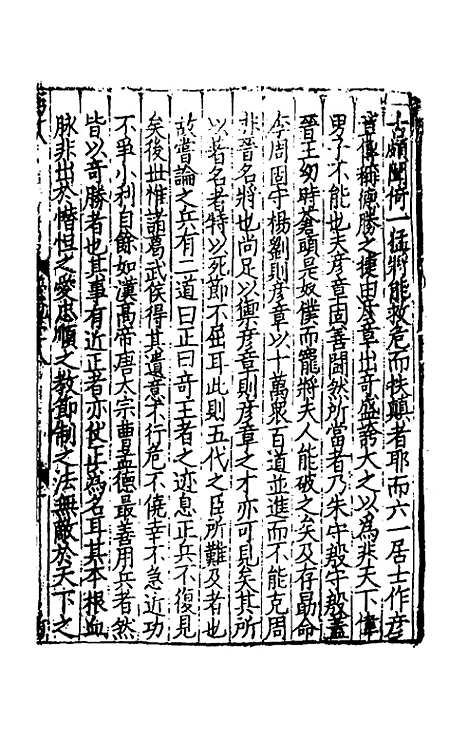 古頗闓倚一猛將能救危而扶顛者耶而六一居士作彦
章傳稱德勝之捷由彦章出奇盛誇大之以為非天下偉
男子不能也夫彦章固善鬪然所當者乃朱守殷守殷蓋
晉王幼時蒼頭是奴僕而寵將夫人能破之矣及存勗命
李周固守楊劉則彦章以十萬衆百道並進而不能克周
非晉名將也尚足以禦彦章則彦章之才亦可見矣其所
以著名者特以死節不屈耳此則五代之臣所難及者也
故嘗論之兵有二道曰正曰奇王者之迹息正兵不復見
矣後世惟諸葛武侯得其遺意不行危不僥幸不急近功
不爭小利自餘如漢高帝唐太宗曹孟德最善用兵者然
皆以奇勝者也其事有近正者亦仗正為名耳其本根血
脉非出於惻怛之愛忠順之教節制之法無敵於天下之